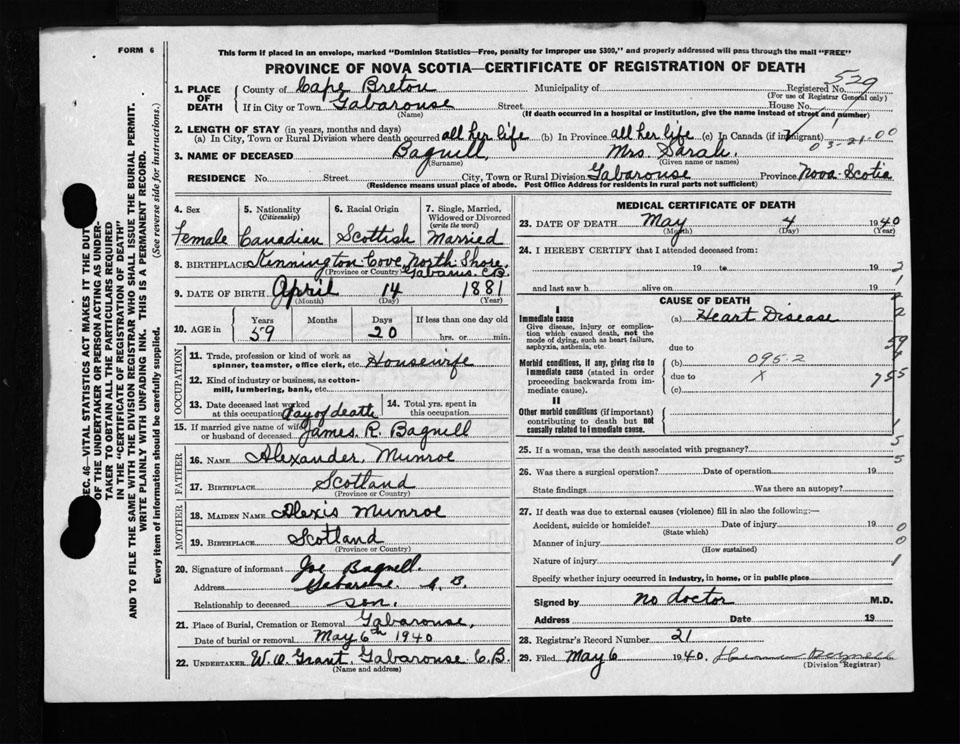 FORM 6
This form if placed in an envelope, marked "Dominion Statistics—Free, penalty for improper use $300," and properly addressed will pass through the mail "FREE"
PROVINCE OF NOVA SCOTIA—CERTIFICATE OF REGISTRATION OF DEATH
529
1. PLACE OF DEATH County of Cape Breton Municipality of Registered No.
(For use of Registrar General only)
If in City or Town Gabarouse Street House No.
(Name) (If death occurred in a hospital or institution, give the name instead of street and number)
2. LENGTH OF STAY (in years, months and days)
(a) In City, Town or Rural Division where death occurred all her life (b) In Province all her life (c) In Canada (if immigrant)
03-21-00
3. NAME OF DECEASED Bagnell, Mrs. Sarah.
(Surname) (Given name or names)
RESIDENCE No. Street City, Town or Rural Division Gabarouse Province Nova Scotia
(Residence means usual place of abode. Post Office Address for residents in rural parts not sufficient)
4. Sex 5. Nationality (Citizenship) 6. Racial Origin 7. Single, Married, Widowed or Divorced (write the word)
Female Canadian Scottish Married
8. BIRTHPLACE Kennington Cove, North Shore, Gabarus C.B.
(Province or Country)
9. DATE OF BIRTH April 14 1881
(Month) (Day) (Year)
10. AGE in Years Months Days If less than one day old
59 20 hrs. or min.
OCCUPATION
11. Trade, profession or kind of work as spinner, teamster, office clerk, etc. Housewife
12. Kind of industry or business, as cotton-mill, lumbering, bank, etc.
13. Date deceased last worked at this occupation Day of death 14. Total yrs. spent in this occupation
15. If married give name of wife or husband of deceased James. R. Bagnell
FATHER
16. NAME Alexander Munroe
17. BIRTHPLACE Scotland
(Province or Country)
MOTHER
18. MAIDEN NAME Alexis Munroe
19. BIRTHPLACE Scotland
(Province or Country)
20. Signature of informant Joe Bagnell.
Address Gabarouse. C. B.
Relationship to deceased son.
21. Place of Burial, Cremation or Removal Gabarouse,
Date of burial or removal May 6th 1940
22. UNDERTAKER W. A. Grant, Gabarouse C.B.
(Name and address)
MEDICAL CERTIFICATE OF DEATH
23. DATE OF DEATH May 4 1940
(Month) (Day) (Year)
24. I HEREBY CERTIFY that I attended deceased from:
19 to 19
and last saw h alive on 19
CAUSE OF DEATH
I
Immediate cause (a) Heart Disease
Give disease, injury or complication which caused death, not the mode of dying, such as heart failure, asphyxia, asthenia, etc.
due to
Morbid conditions, if any, giving rise to immediate cause (stated in order proceeding backwards from immediate cause).
(b) 095-2
due to X
(c)
755
II
Other morbid conditions (if important) contributing to death but not causally related to immediate cause.
25. If a woman, was the death associated with pregnancy?
26. Was there a surgical operation? Date of operation 19
State findings Was there an autopsy?
27. If death was due to external causes (violence) fill in also the following:—
Accident, suicide or homicide? Date of injury 19
(State which)
Manner of injury
(How sustained)
Nature of injury
Specify whether injury occurred in industry, in home, or in public place
Signed by no doctor M.D.
Address Date 19
28. Registrar's Record Number 21
29. Filed May 6 1940.
(Division Registrar)
SEC. 46—VITAL STATISTICS ACT MAKES IT THE DUTY
OF THE UNDERTAKER OR PERSON ACTING AS UNDER-
TAKER TO OBTAIN ALL THE PARTICULARS REQUIRED
IN THE "CERTIFICATE OF REGISTRATION OF DEATH"
AND TO FILE THE SAME WITH THE DIVISION REGISTRAR WHO SHALL ISSUE THE BURIAL PERMIT.
WRITE PLAINLY WITH UNFADING INK. THIS IS A PERMANENT RECORD.
Every item of information should be carefully supplied. (See reverse side for instructions.)